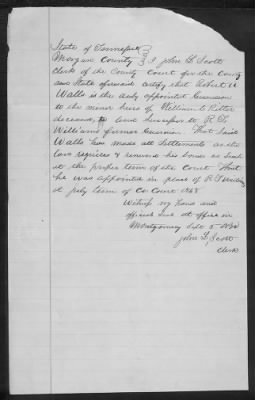 State of Tennessee }
Morgan County } I John L Scott
Clerk of the County Court for the County
and State aforesaid certify that Robert A
Walls is the duly appointed Guardian
to the minor heirs of William C Ritter
deceased, to and Successor to R D
Williams former Guardian. That Said
Walls has made all Settlements as the
law requires & renewed his bond as such
at the proper term of the Court. That
he was appointed in place of R D
at July term of Co Court 1868
Witness my hand and
official Seal at office in
Montgomery Sept 5
John L Scott
Clerk